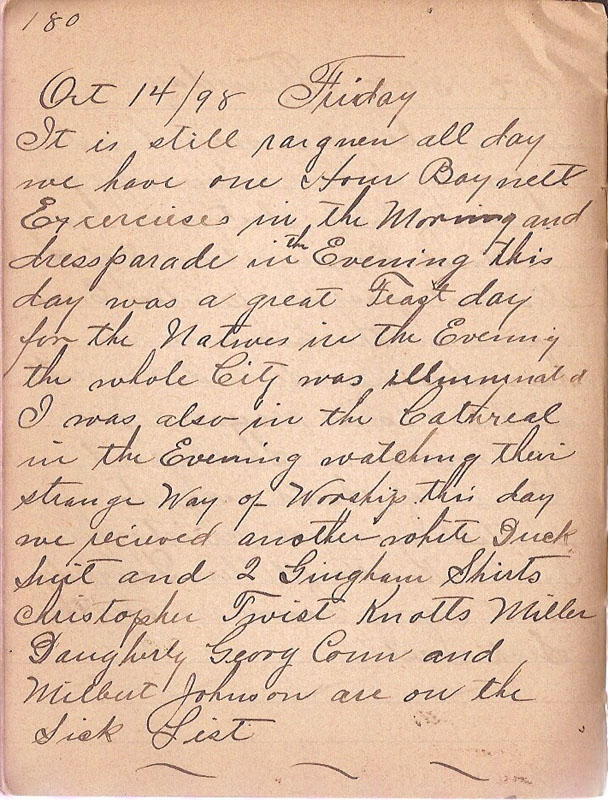 180
Oct 14/98 Friday
It is still raignen all day
we have one Hour Baynett
Excercises in the Morning and
dressparade in th Evening this
day was a great Feast day
for the Natives in the Evening
the whole City was illuminated
I was also in the Cathreal
in the Evening watching their
strange Way of Worship this day
we recieved another white Duck
Suit and 2 Gingham Shirts
Christopher Twist Knotts Miller
Daugherty Georg Conn and
Milbert Johnson are on the
Sick List